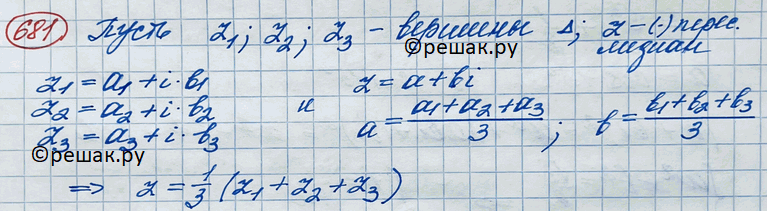 681. Пусть z₁; z₂; z₃ – вершины Δ; z – (·) перес. медиан
©решак.ру
z₁ = a₁ + i · b₁
z₂ = a₂ + i · b₂ и z = a + bi
z₃ = a₃ + i · b₃ a = (a₁ + a₂ + a₃)/3 ; b = (b₁ + b₂ + b₃)/3
©решак.ру
⇒ z = 1/3 (z₁ + z₂ + z₃)